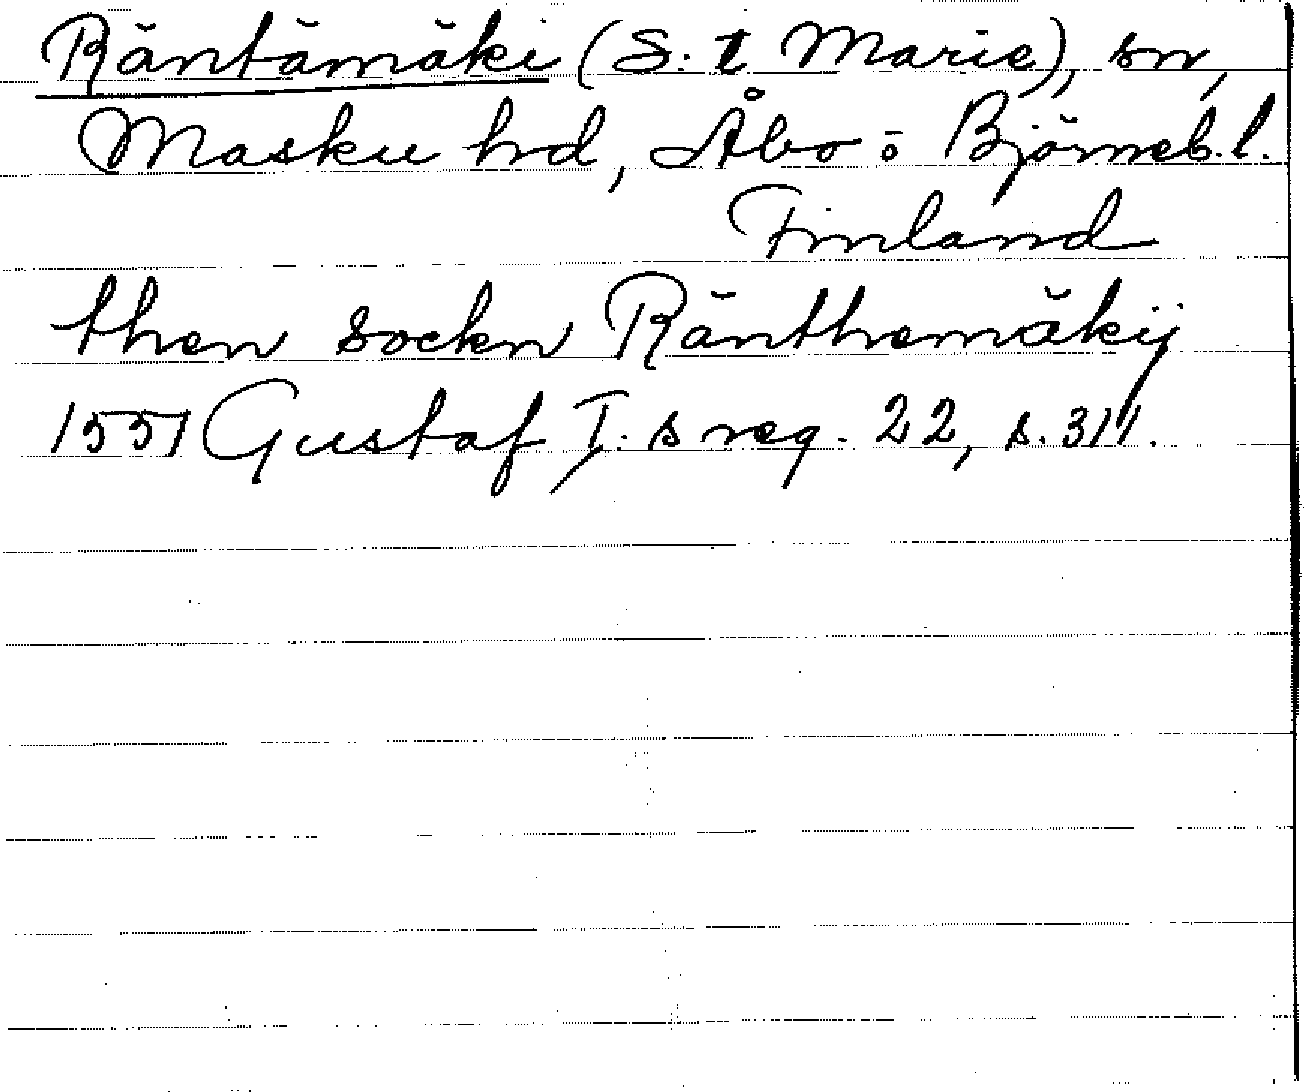 Räntämäki (S:t Marie), sn,
Masku hd, Åbo o Björneb. l.
Finland
then sockn Ränthemäkij
1551 Gustaf I:s reg. 22, s. 311.